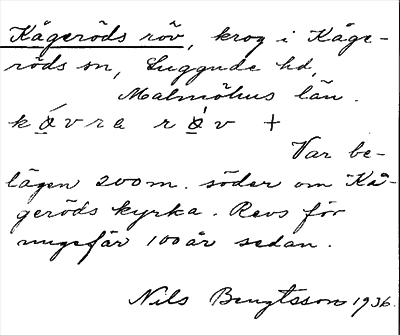 Kågeröds röv, krog i Kåge-
röds sn, Luggude hd,
Malmöhus län.
kǻvra rǿv +
Var be-
lägen 200 m. söder om Kå-
geröds kyrka. Revs för
ungefär 100 år sedan.
Nils Bengtsson 1936.